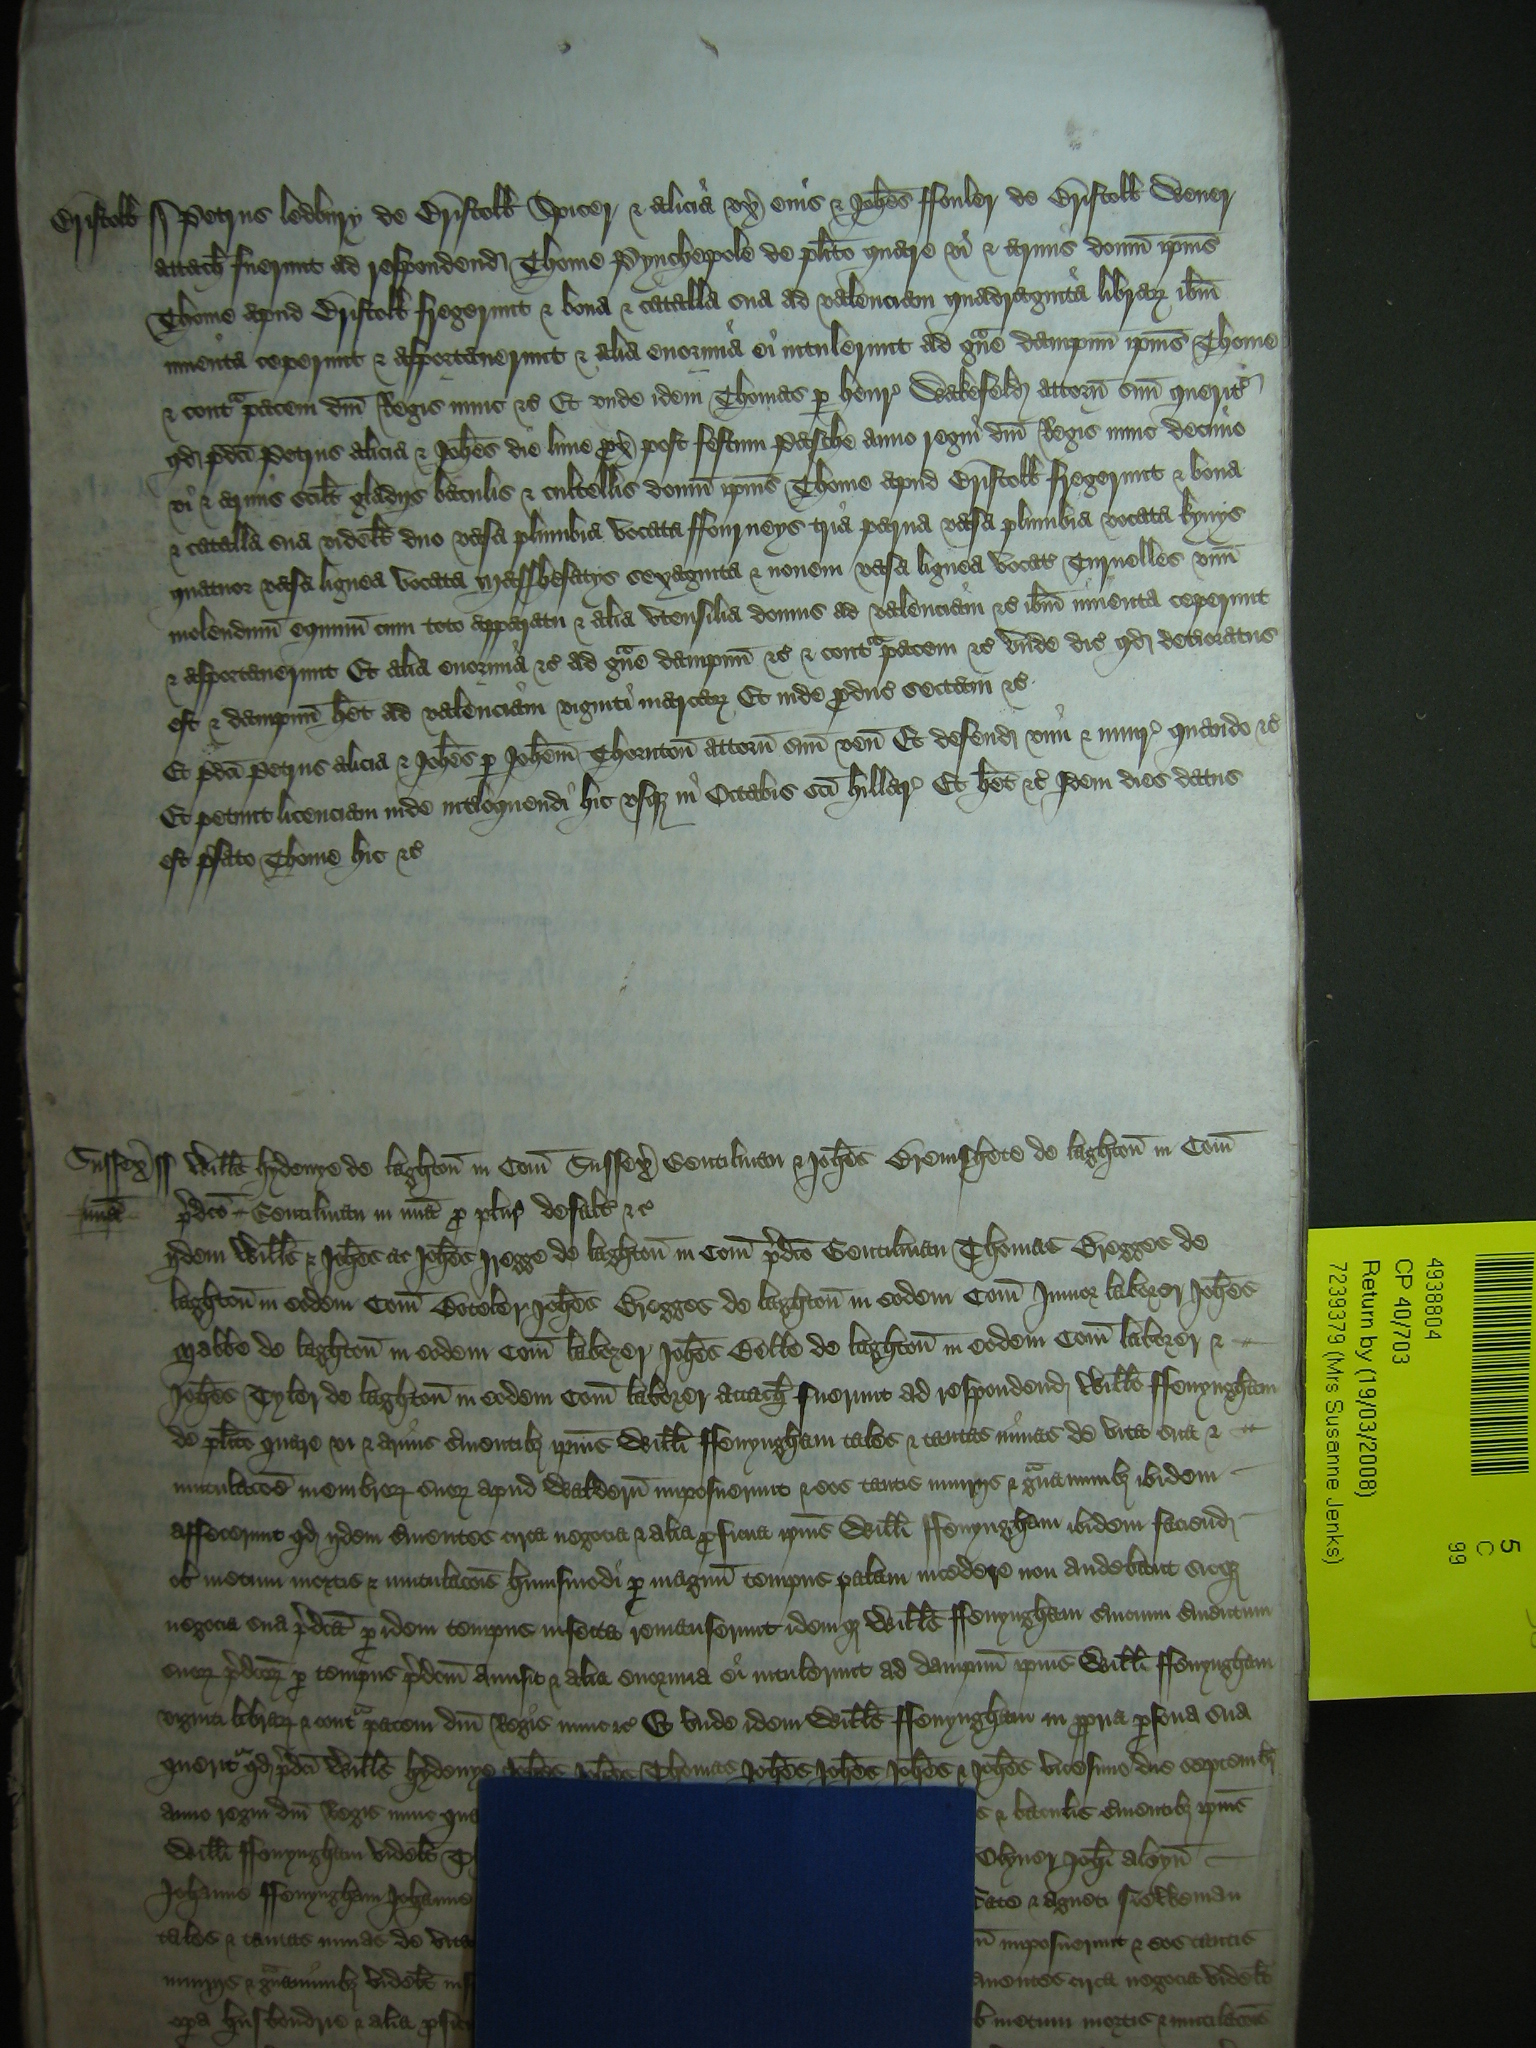 Bristoll ss Petrus ledbury de Bristoll Spicer & Alicia vx' eius & Joh̄es ffouler de Bristoll Wever
attach' fuerunt ad respondend' Thome Pynchepole de pl̄ito quare vi & armis domū ip̄ius
Thome apud Bristoll fregerunt & bona & catalla sua ad valenciam quadraginta librar' ib̄m
inuenta ceperunt & asportauerunt & alia enormia ei intulerunt ad g̃ue dampnū ip̄ius Thome
& contᵃ pacem dn̄i Regis nunc &c̄ Et vnde idem Thomas p henr' Wakefeld attorn̄ suū querit'
qd' p̄dc̄i Petrus Alicia & Joh̄es die lune px' post festum Pasche anno regni dn̄i Regis nunc decimo
vi & armis scil't gladijs baculis & cultellis domū ip̄ius Thome apud Bristoll fregerunt & bona
& catalla sua videl't duo vasa plumbia vocata ffourneys tria parua vasa plumbia vocata kynys
quatuor vasa lignea vocata Masshefatys sexaginta & nouem vasa lignea vocat' Turnelles vnū
molendinū equinū cum toto apparatu & alia vtensilia domus ad valenciam &c̄ ib̄m inuenta ceperunt
& asportauerunt Et alia enormia &c̄ ad g̃ue dampnū &c̄ & contᵃ pacem &c̄ vnde dic' qd' deterioratus
est & dampnū h̄et ad valenciam viginti marcar' Et inde p̄duc' sectam &c̄
Et p̄dc̄i Petrus Alicia & Joh̄es p Joh̄em Thornton̄ attorn̄ suū ven̄ Et defend' vim & iniur' quando &c̄
Et petunt licenciam inde int'loquendi hic vsq' in Octabis sc̄i hillar' Et h̄et &c̄ Idem dies datus
est p̄fato Thome hic &c̄
Sussex' ss Will's hydenye de laghton̄ in Com̄ Sussex' Gentilman & Joh̄es Bremshete de laghton̄ in Com̄
mīa p̄dc̄o Gentilman in mīa p plur' defalt' &c̄
Ijdem Will's & Joh̄es ac Joh̄es Jregge de laghton̄ in Com̄ p̄dc̄o Gentilman Thomas Bregges de
laghton̄ in eodem Com̄ Boteler Joh̄es Bregges de laghton̄ in eodem Com̄ Junior laborer Joh̄es
Mabbe de laghton̄ in eodem Com̄ laborer Joh̄es Belle de laghton̄ in eodem Com̄ laborer &
Joh̄es Tyler de laghton̄ in eodem Com̄ laborer attach' fuerunt ad respondend' Will'o ffenyngham
de pl̄ito quare vi & armis seruientib' ip̄ius Will'i ffenyngham tales & tantas minas de vita sua &
mutulac̄oe membror' suor' apud Waldern̄ imposuerunt & eos tantis iniurijs & gᵃuaminib' ibidem
affecerunt qd' ijdem seruientes circa negocia & alia p̄ficua ip̄ius Will'i ffenyngham ibidem faciend'
ob metum mortis & mutulac̄ois huiusmodi p magnū tempus palam incedere non audebant sicq'
negocia sua p̄dc̄a p idem tempus infecta remanserunt idemq' Will's ffenyngham seruicium seruientum
suor' p̄dc̄or' p tempus p̄dc̄m amisit & alia enormia ei intulerunt ad dampnū ip̄ius Will'i ffenyngham
viginti librar' & contᵃ pacem dn̄i Regis nunc &c̄ Et vnde idem Will's ffenyngham in ppria psona sua
querit' qd' p̄dc̄i Will's hydenye Joh̄es Joh̄es Thomas Joh̄es Joh̄es Joh̄es & Joh̄es vicesimo die Septemb'
anno regni dn̄i Regis nunc & baculis seruientib' ip̄ius
Will'i ffenyngham videl't Joh̄i Aleyn̄
Johanne ffenyngham Johanne & Agneti
tales & tantas minas de vita imposuerunt & eos tantis
iniurijs & gᵃuaminib' videl't circa negocia videl't
opa husbondrie & alia metum mortis & mutilac̄ois
4938804
CP 40/703
Return by (19/03/2008)
7239379 (Mrs Susanne Jenks)
5
C
99